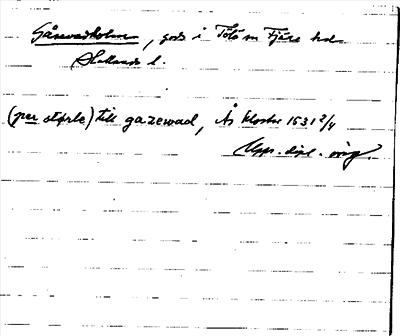 Gåsevadholm, gods i Tölö sn Fjäre hd
Hallands l.
(per støfte) till gazewad, Ås kloster 1531 2/4
Upps. dipl. orig.